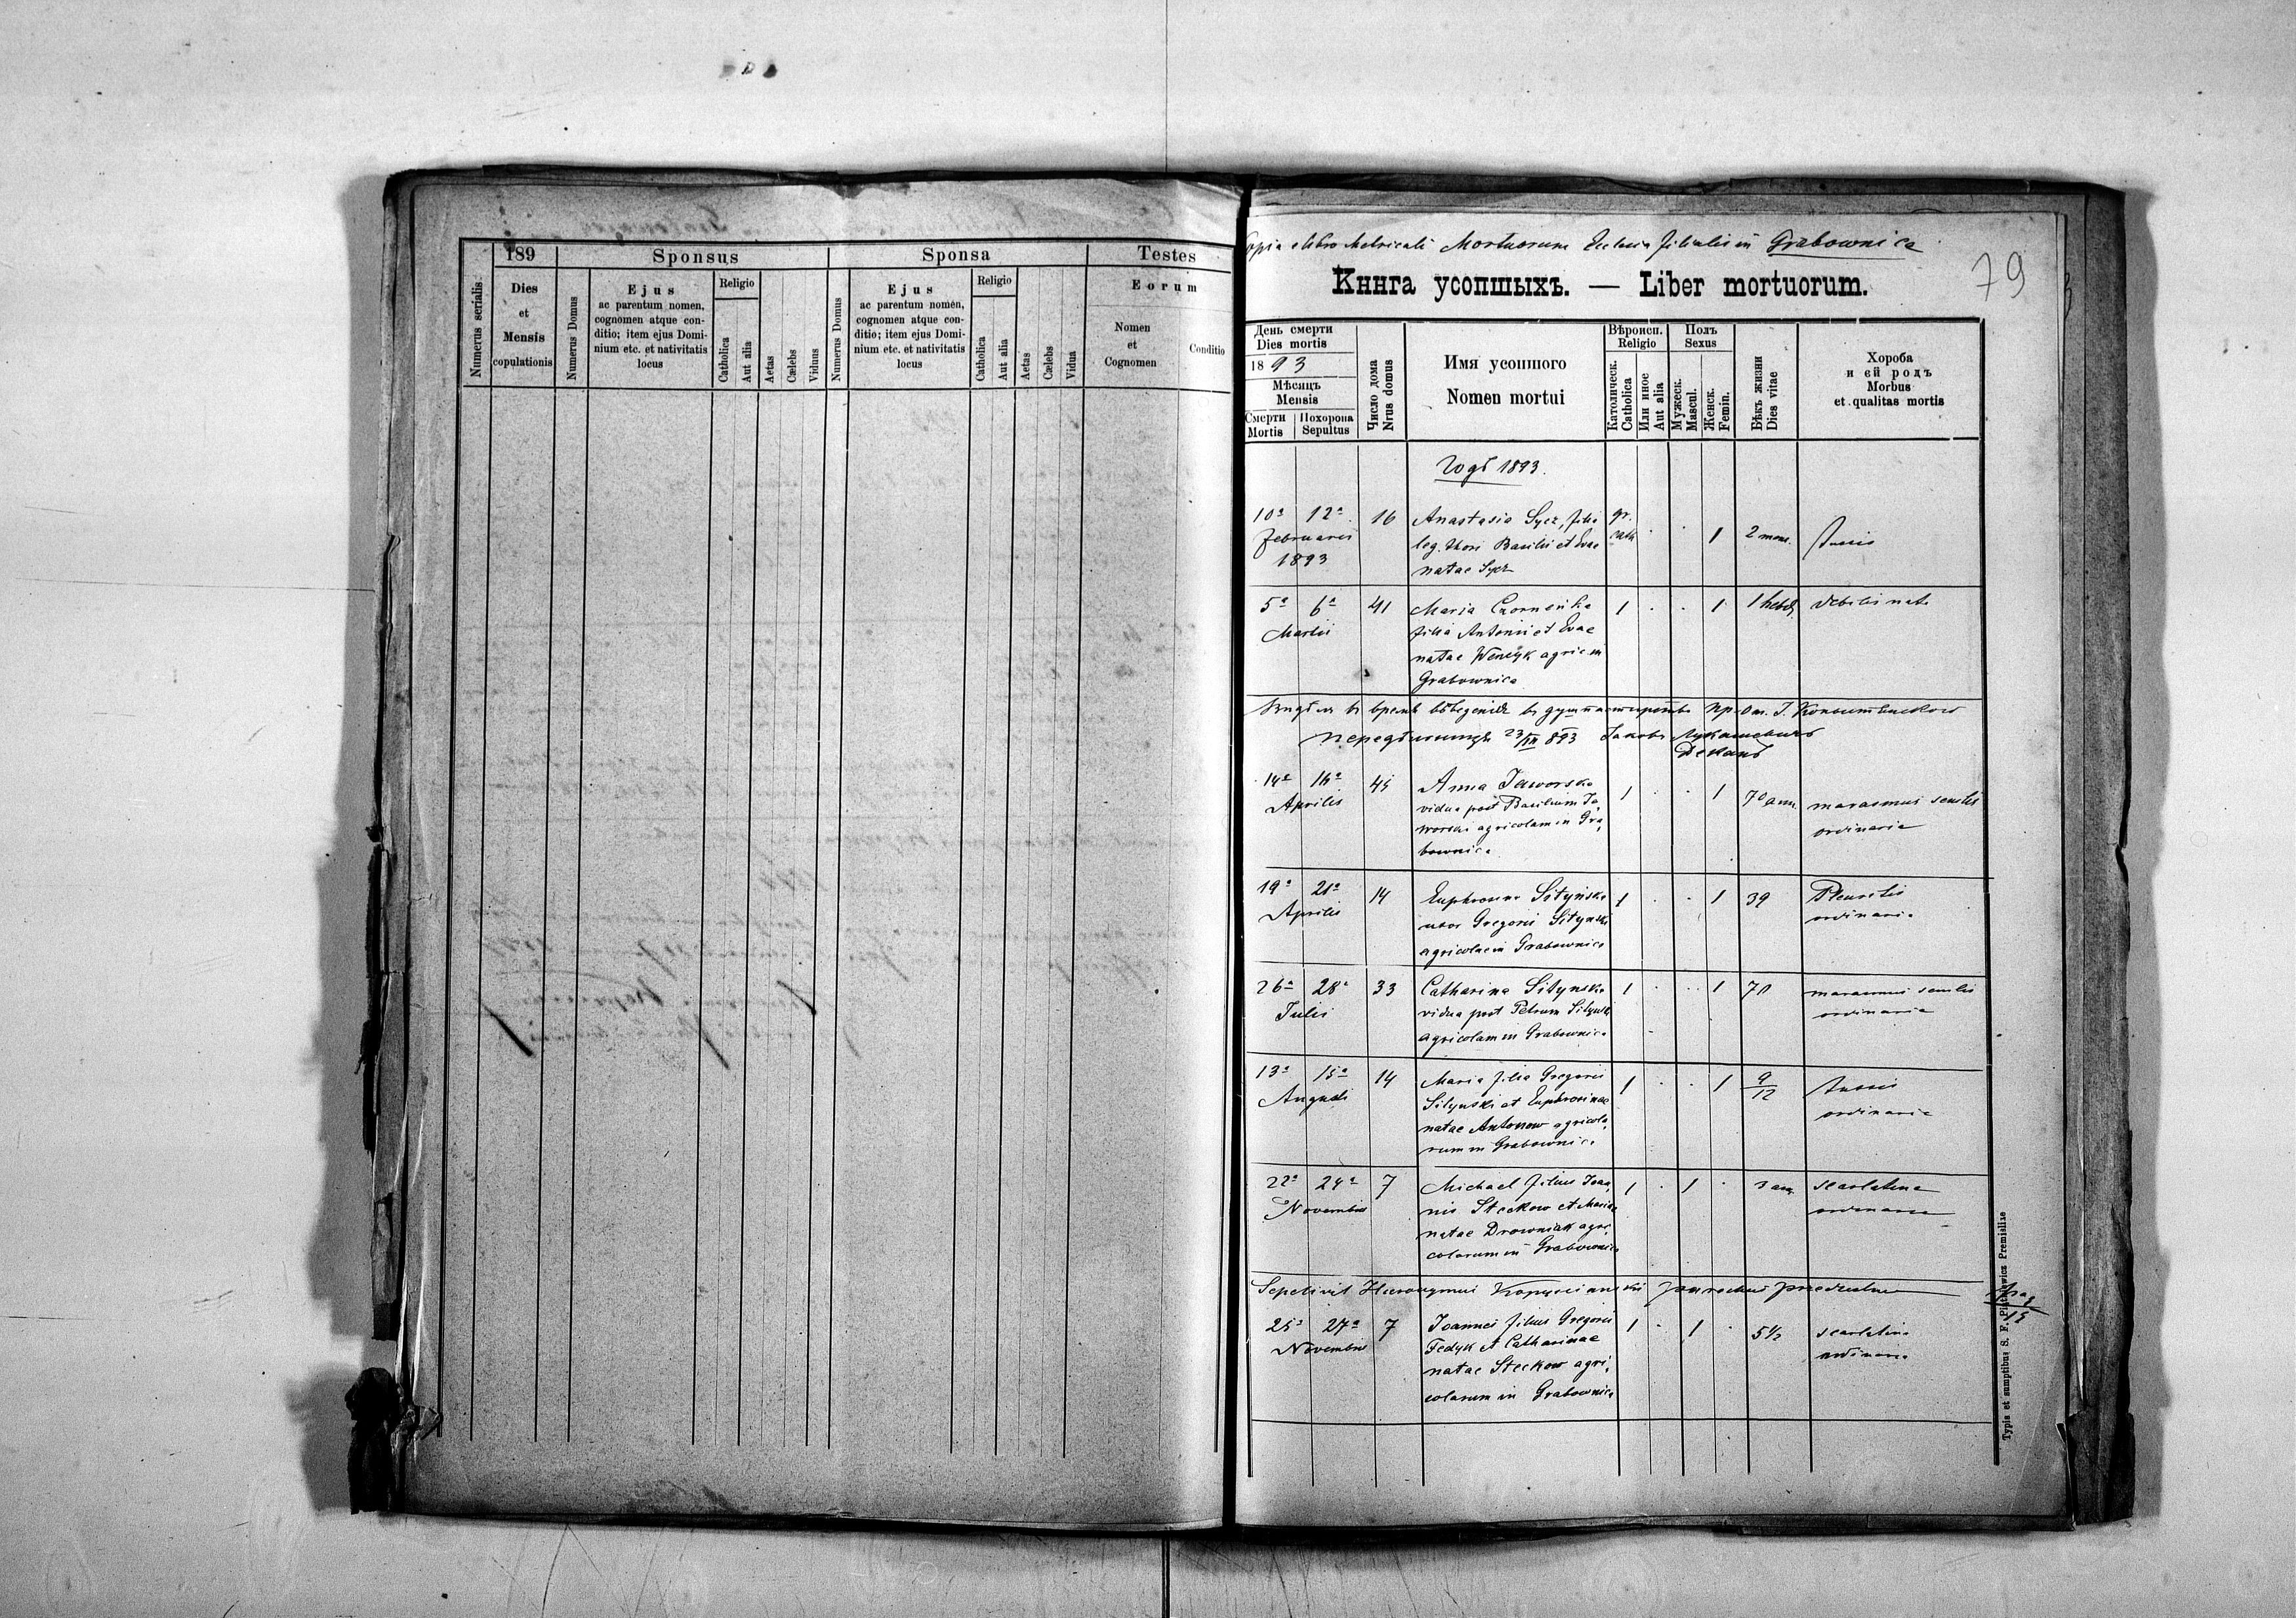 189
Sponsus
Sponsa
Testes
Numerus serialis
Dies
et
Mensis
copulationis
Numerus Domus
Ejus
ac parentum nomen,
cognomen atque con-
ditio; item ejus Domi-
nium etc. et nativitatis
locus
Religio
Catholica
Aut alia
Aetas
Cælebs
Viduus
Numerus Domus
Ejus
ac parentum nomen,
cognomen atque con-
ditio; item ejus Domi-
nium etc. et nativitatis
locus
Religio
Catholica
Aut alia
Aetas
Cælebs
Vidua
Eorum
Nomen
et
Cognomen
Conditio
Copia e libro Metricali Mortuorum Ecclesia filialis in Grabownica
79
Книга усопшыхъ. — Liber mortuorum.
День смерти
Dies mortis
1893
Мѣсяцъ
Mensis
Смерти
Mortis
Похорона
Sepultus
Число дома
Nrus domus
Имя усопшого
Nomen mortui
Вѣроисп.
Religio
Католическ.
Catholica
Или иное
Aut alia
Полъ
Sexus
Мужеск.
Mascul.
Женск.
Femin.
Вѣкъ жизни
Dies vitae
Хороба
и ей родъ
Morbus
et qualitas mortis
Годъ 1893.
10a 12a 16 Anastasia Sycz, filia gr.
Februarii leg. thori Basilii et Evae cath 1 2 mens. tussis
1893 natae Sycz
5a 6a 41 Maria Czorneńka 1 1 1 hebd. debilis nata
Martii filia Antonii et Evae
natae Wenczyk agric. in
Grabownica
в время въ
23/III 893 Яковъ Лукашевичъ
Деканъ
14a 16a 45 Anna Jaworska 1 1 70 ann. marasmus senilis
Aprilis vidua post Basilium Ja-
worski agricolam in Gra- ordinaria
bownica
19a 21a 14 Euphrosina Sityńska 1 1 39 Pleuritis
Aprilis uxor Gregorii Sityński ordinaria
agricolae in Grabownica
26a 28a 33 Catharina Sitynska 1 1 70 marasmus senilis
Julii vidua post Petrum Sitynski ordinaria
agricolam in Grabownica
13a 15a 14 Maria filia Gregorii 1 1 9/12 tussis
Augusti Sitynski et Euphrosinae ordinaria
natae Antonow agricola-
rum in Grabownica
22a 24a 7 Michael filius Joan- 1 1 3 ann. scarlatina
Novembris nis Steckow et Mariae ordinaria
natae Drowniak agri-
colarum in Grabownica
Sepelivit Hieronymus parochus
25a 27a 7 Joannes filius Gregorii 1 1 5½ scarlatina
Novembris Fedyk et Catharinae ordinaria
natae Steckow agri-
colarum in Grabownica
Typis et sumptibus S. F. Piątkiewicz Premisliae